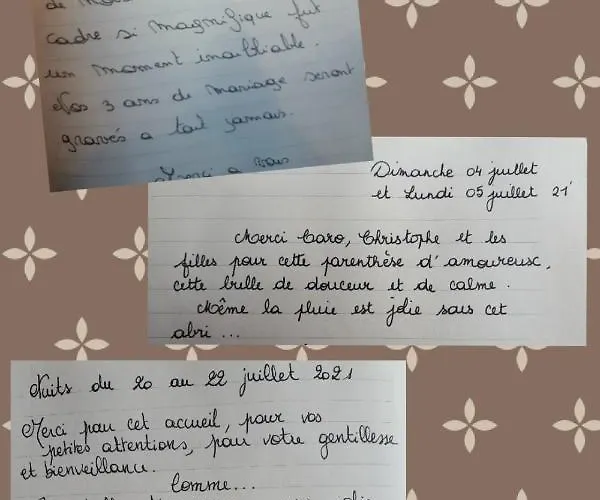 de
cadre si magnifique fut
un moment inoubliable.
Nos 3 ans de mariage seront
gravés a tout jamais.
Merci a vous
Dimanche 04 juillet
et Lundi 05 juillet 21'
Merci Caro, Christophe et les
filles pour cette parenthèse d'amoureux,
cette bulle de douceur et de calme.
Même la pluie est jolie sous cet
abri ...
Nuits du 20 au 22 juillet 2021
Merci pour cet accueil, pour vos
petites attentions, pour votre gentillesse
et bienveillance.
Comme...